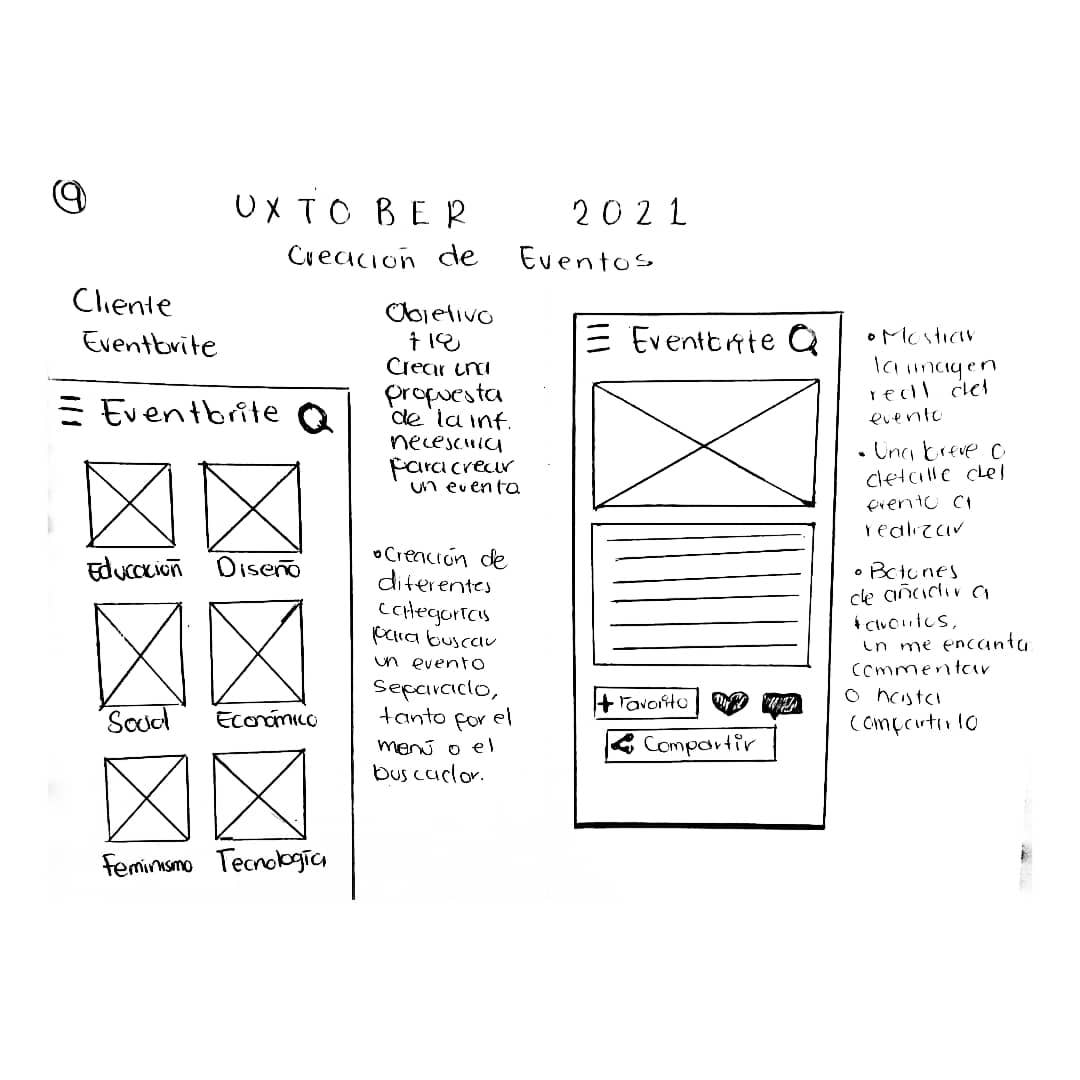 9
UXTOBER 2021
Creación de Eventos
Cliente
Eventbrite
Eventbrite
Educación Diseño
Social Económico
Feminismo Tecnología
Objetivo
Crear una
propuesta
de la inf.
necesaria
para crear
un evento
•Creación de
diferentes
categorías
para buscar
un evento
separado,
tanto por el
menú o el
buscador.
Eventbrite
+ Favorito
Compartir
• Mostrar
la imagen
real del
evento
• Una breve o
detalle del
evento a
realizar
• Botones
de añadir a
favoritos,
un me encanta
commentar
o hasta
compartirlo